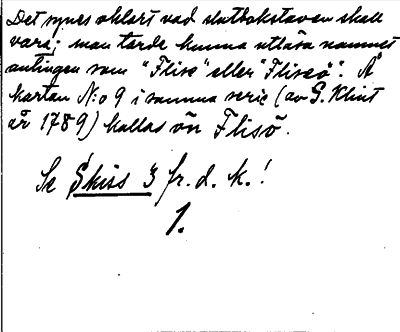 Det synes oklart vad slutbokstaven skall
vara; man torde kunna utläsa namnet
antingen som "Flise" eller "Flisö". Å
kartan N:o 9 i samma serie (av G. Klint
år 1789) kallas ön Flisö.
Se Skiss 3 fr. d. k.!
1.